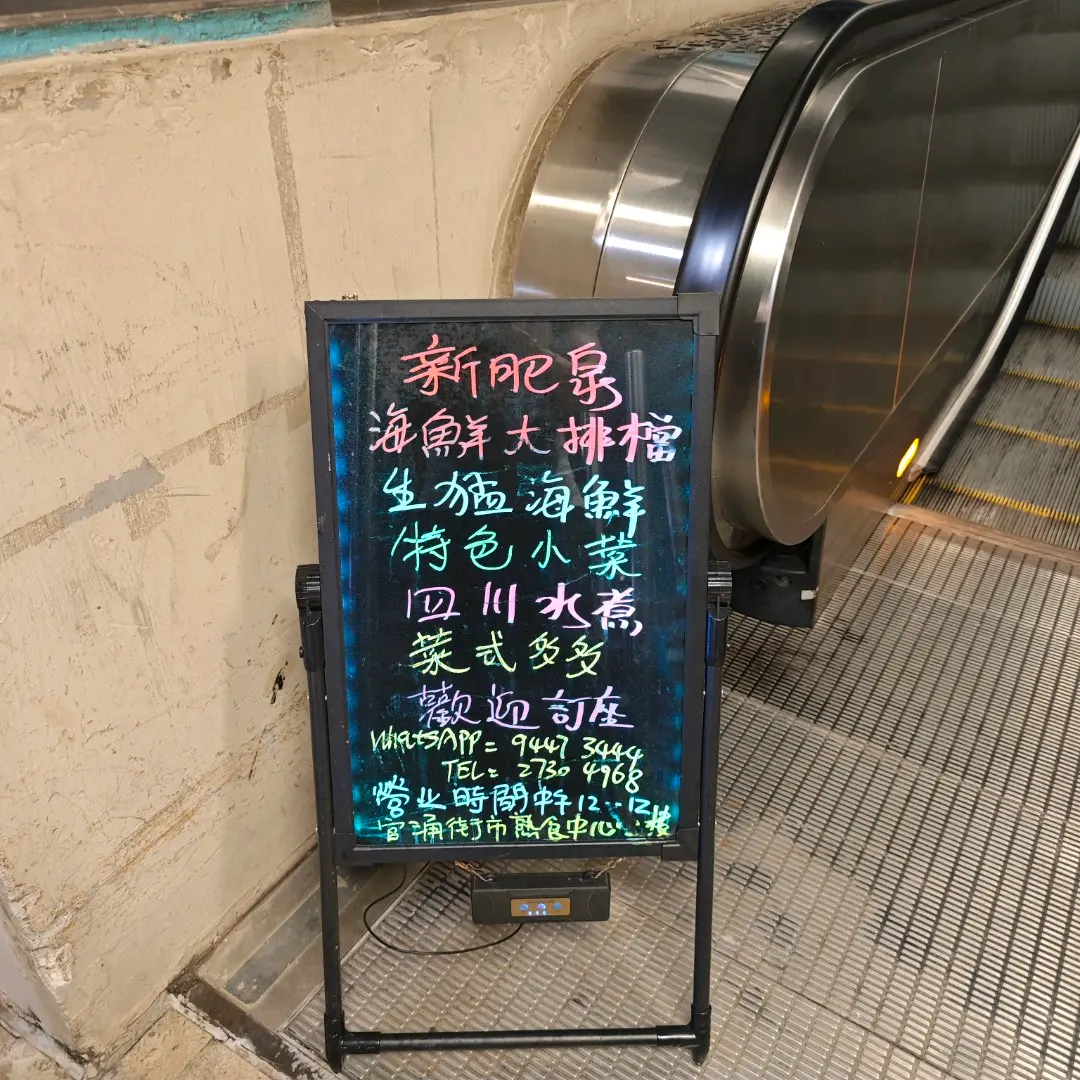 新肥泉
海鮮大排檔
生猛海鮮
特色小菜
四川水煮
菜式多多
歡迎訂座
WhatsAPP= 9447 3444
TEL= 2730 4968
營业時間中午12--12
官涌街市熟食中心三楼